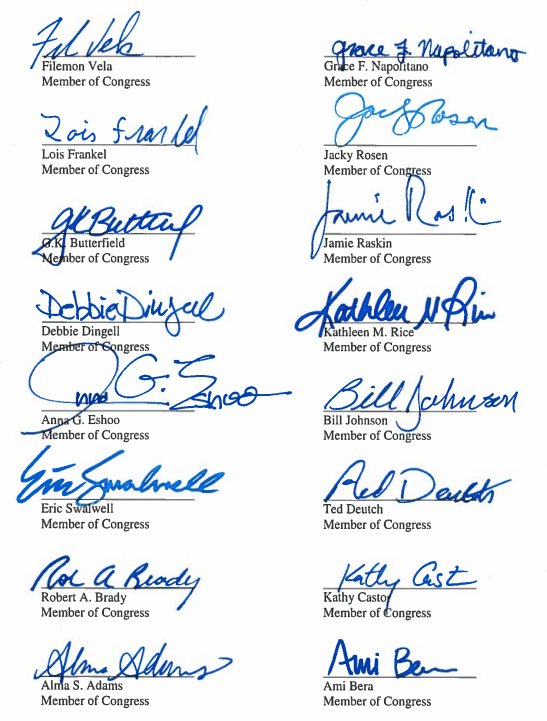 Fil Vela
Filemon Vela
Member of Congress
Grace F. Napolitano
Grace F. Napolitano
Member of Congress
Lois Frankel
Lois Frankel
Member of Congress
Jacky Rosen
Jacky Rosen
Member of Congress
GK Butterfield
G.K. Butterfield
Member of Congress
Jamie Raskin
Jamie Raskin
Member of Congress
Debbie Dingell
Debbie Dingell
Member of Congress
Kathleen M Rice
Kathleen M. Rice
Member of Congress
Anna G. Eshoo
Anna G. Eshoo
Member of Congress
Bill Johnson
Bill Johnson
Member of Congress
Eric Swalwell
Eric Swalwell
Member of Congress
Ted Deutch
Ted Deutch
Member of Congress
Rob A Brady
Robert A. Brady
Member of Congress
Kathy Castor
Kathy Castor
Member of Congress
Alma Adams
Alma S. Adams
Member of Congress
Ami Bera
Ami Bera
Member of Congress